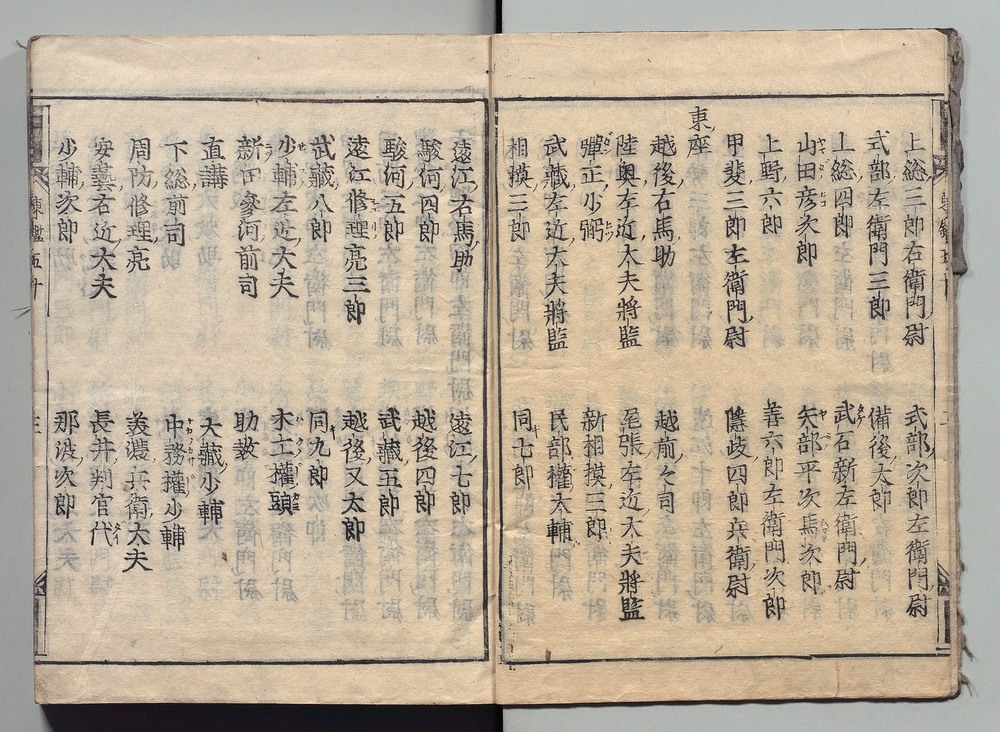 上総三郎右衛門尉　式部次郎左衛門尉
式部左衛門三郎　備後太郎
上総四郎　武石新左衛門尉
山田彦次郎　矢部平次馬次郎
上野六郎　善六郎左衛門次郎
甲斐三郎左衛門尉　隱岐四郎兵衛尉
東座
越後右馬助　越前々司
陸奥左近大夫將監　尾張左近大夫將監
彈正少弼　新相摸三郎
武藏左近大夫將監　民部權大輔
相摸三郎　同七郎
遠江右馬助　遠江七郎
駿河四郎　越後四郎
駿河五郎　武藏五郎
遠江修理亮三郎　越後又太郎
武藏八郎　同九郎
少輔左近大夫　木工權頭
新田參河前司　助教
直講　大藏少輔
下総前司　中務權少輔
周防修理亮　美濃兵衛大夫
安藝右近大夫　長井判官代
少輔次郎　那波次郎
東鑑五十　三